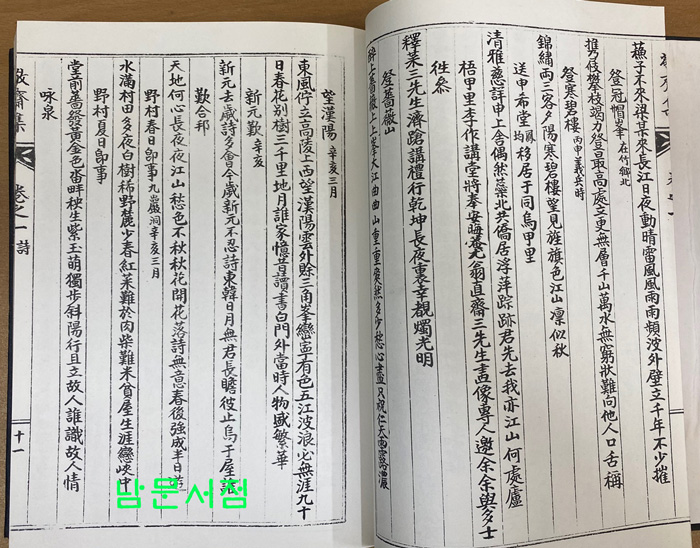 來柴某來長江日夜動晴雷風風雨雨頻波外壁立千年不少摧
登冠帽峯 在竹鄉北
携笻攀枝竭力登最高處立更無層千山萬水無窮狀難向他人口舌稱
登寒碧樓 丙申義兵時
錦繡兩三客夕陽寒碧樓望見旌旗色江山凛似秋
送申布堂 均 移居于同烏甲里
清雅慈詳申上舍偶然落北共僑居浮萍踪跡君先去我亦江山何處廬
梧甲里李作講堂將奉安晦養翁直齋三先生畫像專人邀余余與多士
往參
釋菜三先生濟蹌講禮行乾坤長夜裏幸覩燭光明
登薔薇山
醉上薔薇上上峯大江曲曲山重重然多少愁心盡只祝仁天雨露濃
望漢陽 辛亥三月
東風佇立高陵上西望漢陽雲外賖三角峯巒寧有色五江波浪必無涯九十
日春花別樹三千里地月誰家憶昔讀書白門外當時人物感繁華
新元歎 辛亥
新元去歲詩多會今歲新元不忍詩東韓日月無君長瞻彼止烏于屋
歎合邦
天地何心長夜夜江山愁色不秋秋花開花落詩無意春後強成半日
野村春日卽事 九巖洞辛亥三月
水滿村田多夜白樹稀野麓少春紅菜難於肉柴難米貧屋生涯戀峽中
野村夏日卽事
堂前薔發黃金色畓畔秧生紫玉萌獨步斜陽行且立故人誰識故人情
咏泉
齋集 卷之一 詩 十一
남문서점